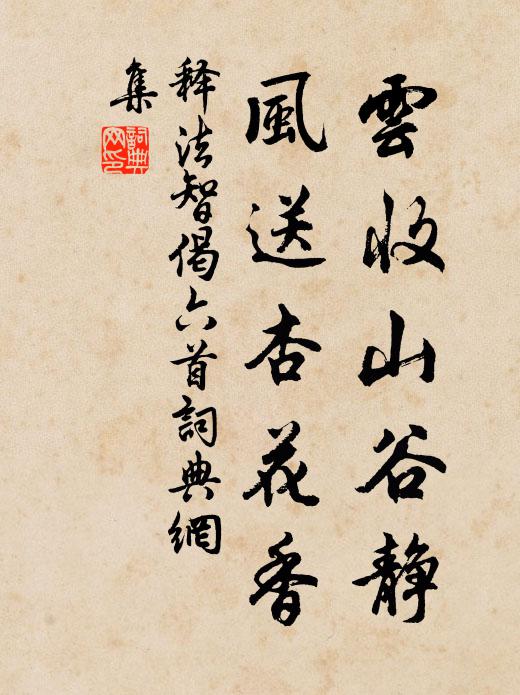 雲收山谷静
風送杏花香
释法智偈六首詞典網
集
詞典
网印